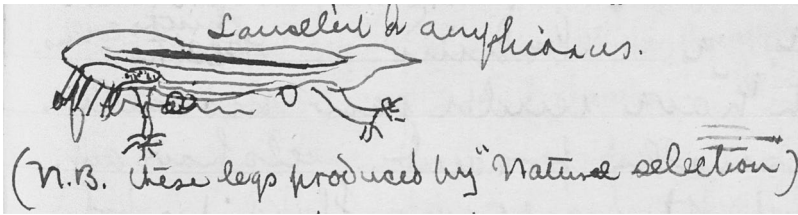 Lancelet & amphioxus.
(N.B. these legs produced by "Natural selection)